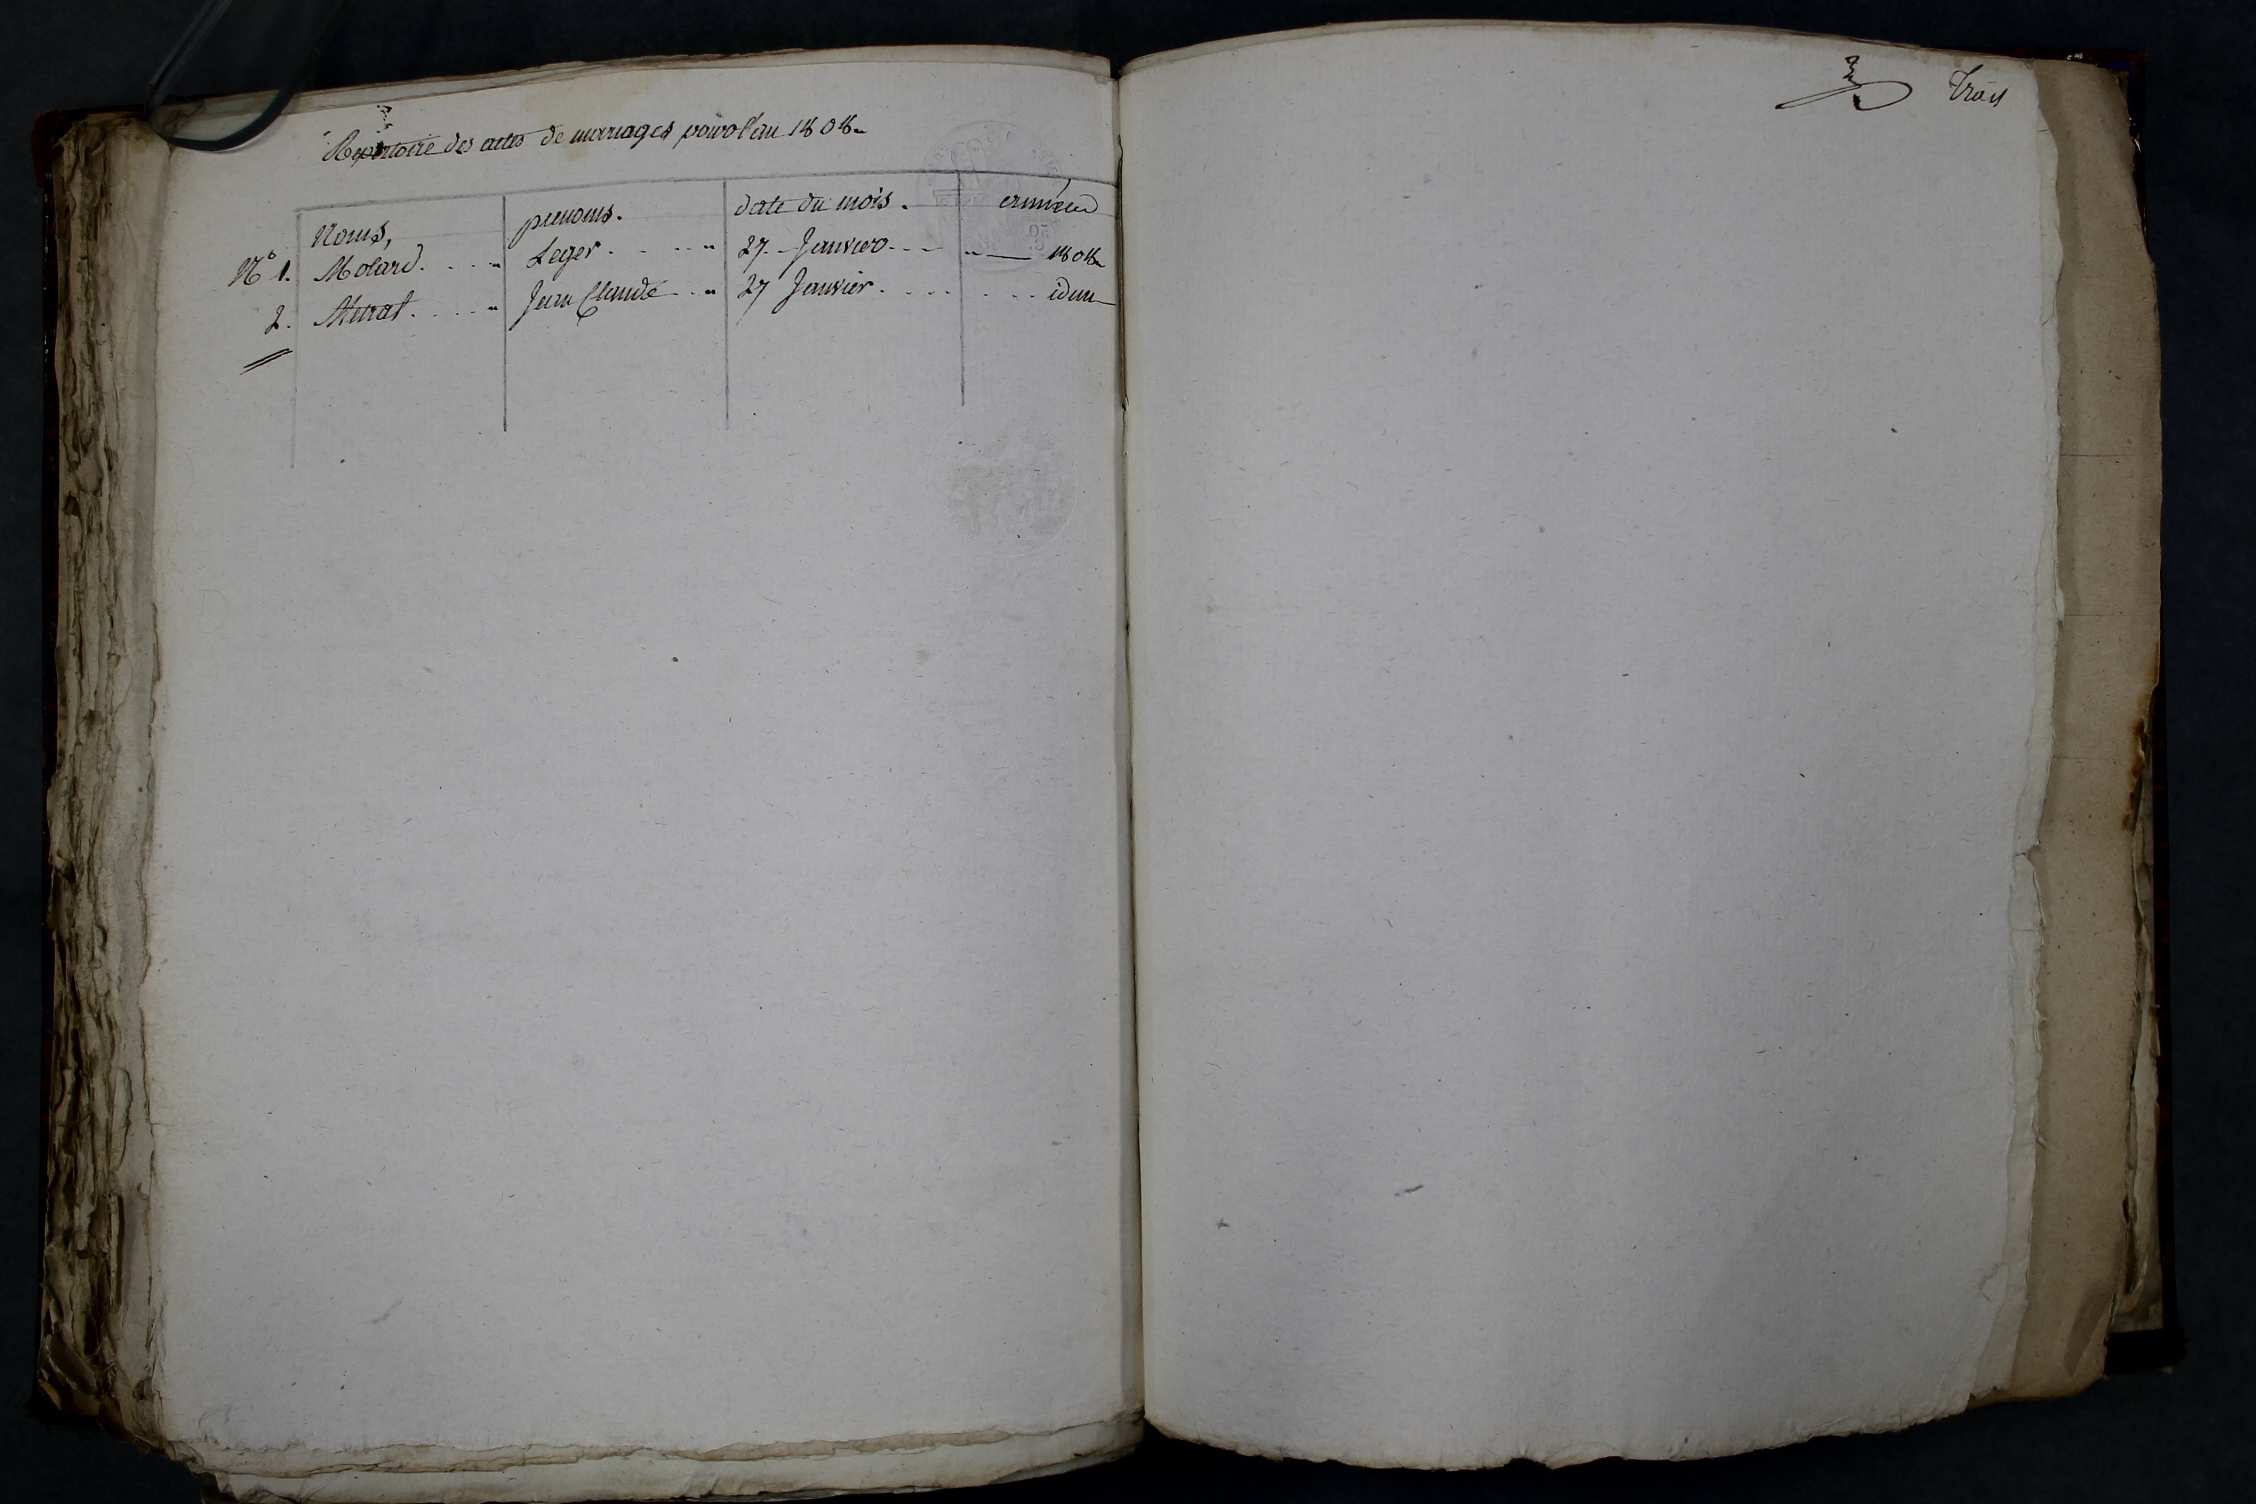 Repertoire des actes de mariages pour l'an 1808
Noms, prenoms. date du mois. année
N° 1. Molard. Leger. 27. Janvier 1808
2. Metral. Jean Claude 27 Janvier. idem
Trois